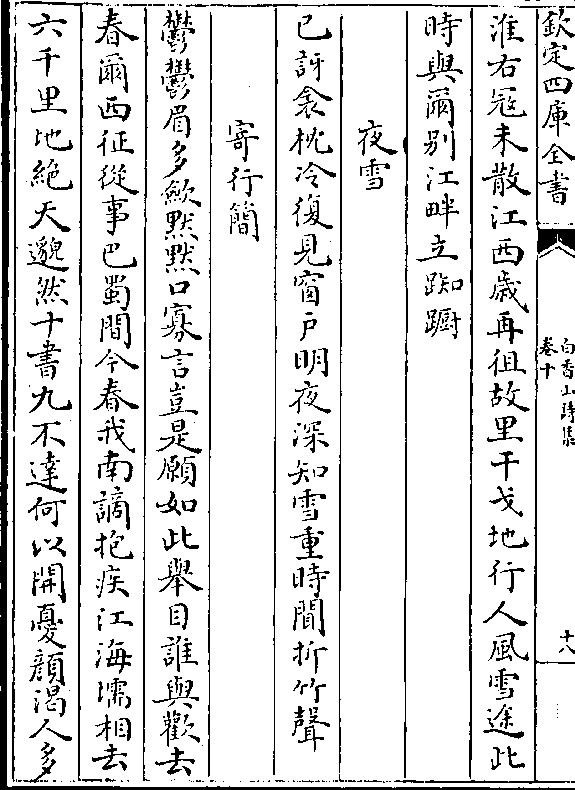 欽定四庫全書
白香山詩集
卷十
十八
淮右冦未散江西歳再徂故里干戈地行人風雪途此
時與爾别江畔立踟蹰
夜雪
已訝衾枕冷復見窗户明夜深知雪重時聞折竹聲
寄行簡
鬱鬱眉多歛黙黙口寡言豈是願如此舉目誰與歡去
春爾西征從事巴蜀間今春我南謫抱疾江海壖相去
六千里地絶天邈然十書九不達何以開憂顔渴人多